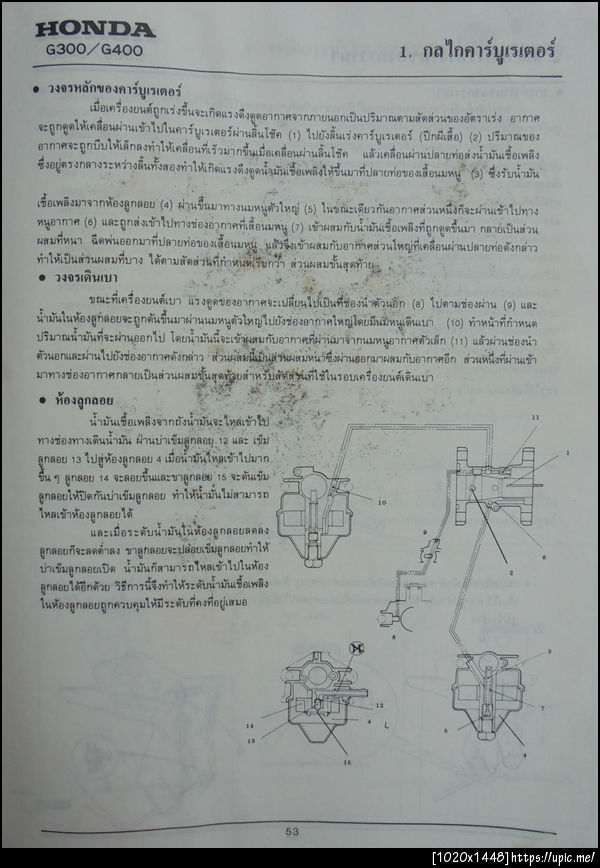 HONDA
G300/G400
1. กลไกคาร์บูเรเตอร์
● วงจรหลักของคาร์บูเรเตอร์
เมื่อเครื่องยนต์ถูกเร่งขึ้นจะเกิดแรงดึงดูดอากาศจากภายนอกเป็นปริมาณตามสัดส่วนของอัตราเร่ง อากาศ
จะถูกดูดให้เคลื่อนผ่านเข้าไปในคาร์บูเรเตอร์ผ่านลิ้นโช๊ค (1) ไปยังลิ้นเร่งคาร์บูเรเตอร์ (ปีกผีเสื้อ) (2) ปริมาณของ
อากาศจะถูกบีบให้เล็กลงทำให้เคลื่อนที่เร็วมากขึ้นเมื่อเคลื่อนผ่านลิ้นโช๊ค แล้วเคลื่อนผ่านปลายท่อส่งน้ำมันเชื้อเพลิง
ซึ่งอยู่ตรงกลางระหว่างลิ้นทั้งสองทำให้เกิดแรงดึงดูดน้ำมันเชื้อเพลิงให้ขึ้นมาที่ปลายท่อของเสื้อนมหนู (3) ซึ่งรับน้ำมัน
เชื้อเพลิงมาจากห้องลูกลอย (4) ผ่านขึ้นมาทางนมหนูตัวใหญ่ (5) ในขณะเดียวกันอากาศส่วนหนึ่งก็จะผ่านเข้าไปทาง
หนูอากาศ (6) และถูกส่งเข้าไปทางช่องอากาศที่เสื้อนมหนู (7) เข้าผสมกับน้ำมันเชื้อเพลิงที่ถูกดูดขึ้นมา กลายเป็นส่วน
ผสมที่หนา ฉีดพ่นออกมาที่ปลายท่อของเสื้อนมหนู แล้วจึงเข้าผสมกับอากาศส่วนใหญ่ที่เคลื่อนผ่านปลายท่อดังกล่าว
ทำให้เป็นส่วนผสมที่บาง ได้ตามสัดส่วนที่กำหนดเรียกว่า ส่วนผสมขั้นสุดท้าย
● วงจรเดินเบา
ขณะที่เครื่องยนต์เบา แรงดูดของอากาศจะเปลี่ยนไปเป็นที่ช่องน้ำตัวนอก (8) ไปตามช่องผ่าน (9) และ
น้ำมันในห้องลูกลอยจะถูกดันขึ้นมาผ่านนมหนูตัวใหญ่ไปยังช่องอากาศใหญ่โดยมีนมหนูเดินเบา (10) ทำหน้าที่กำหนด
ปริมาณน้ำมันที่จะผ่านออกไป โดยน้ำมันนี้จะเข้าผสมกับอากาศที่ผ่านมาจากนมหนูอากาศตัวเล็ก (11) แล้วผ่านช่องนำ
ตัวนอกและผ่านไปยังช่องอากาศดังกล่าว ส่วนผสมนี้เป็นส่วนผสมหนาซึ่งผ่านออกมาผสมกับอากาศอีก ส่วนหนึ่งที่ผ่านเข้า
มาทางช่องอากาศกลายเป็นส่วนผสมขั้นสุดท้ายสำหรับสัดส่วนที่ใช้ในรอบเครื่องยนต์เดินเบา
● ห้องลูกลอย
น้ำมันเชื้อเพลิงจากถังน้ำมันจะไหลเข้าไป
ทางช่องทางเดินน้ำมัน ผ่านบ่าเข็มลูกลอย 12 และ เข็ม
ลูกลอย 13 ไปสู่ห้องลูกลอย 4 เมื่อน้ำมันไหลเข้าไปมาก
ขึ้น ๆ ลูกลอย 14 จะลอยขึ้นและขาลูกลอย 15 จะดันเข็ม
ลูกลอยให้ปิดกับบ่าเข็มลูกลอย ทำให้น้ำมันไม่สามารถ
ไหลเข้าห้องลูกลอยได้
และเมื่อระดับน้ำมันในห้องลูกลอยลดลง
ลูกลอยก็จะลดต่ำลง ขาลูกลอยจะปล่อยเข็มลูกลอยทำให้
บ่าเข็มลูกลอยเปิด น้ำมันก็สามารถไหลเข้าไปในห้อง
ลูกลอยได้อีกด้วย วิธีการนี้จึงทำให้ระดับน้ำมันเชื้อเพลิง
ในห้องลูกลอยถูกควบคุมให้มีระดับที่คงที่อยู่เสมอ
11
1
10
9
2
6
8
3
14
12
4
7
13
5
15
4
53
[1020x1448]https://upic.me/